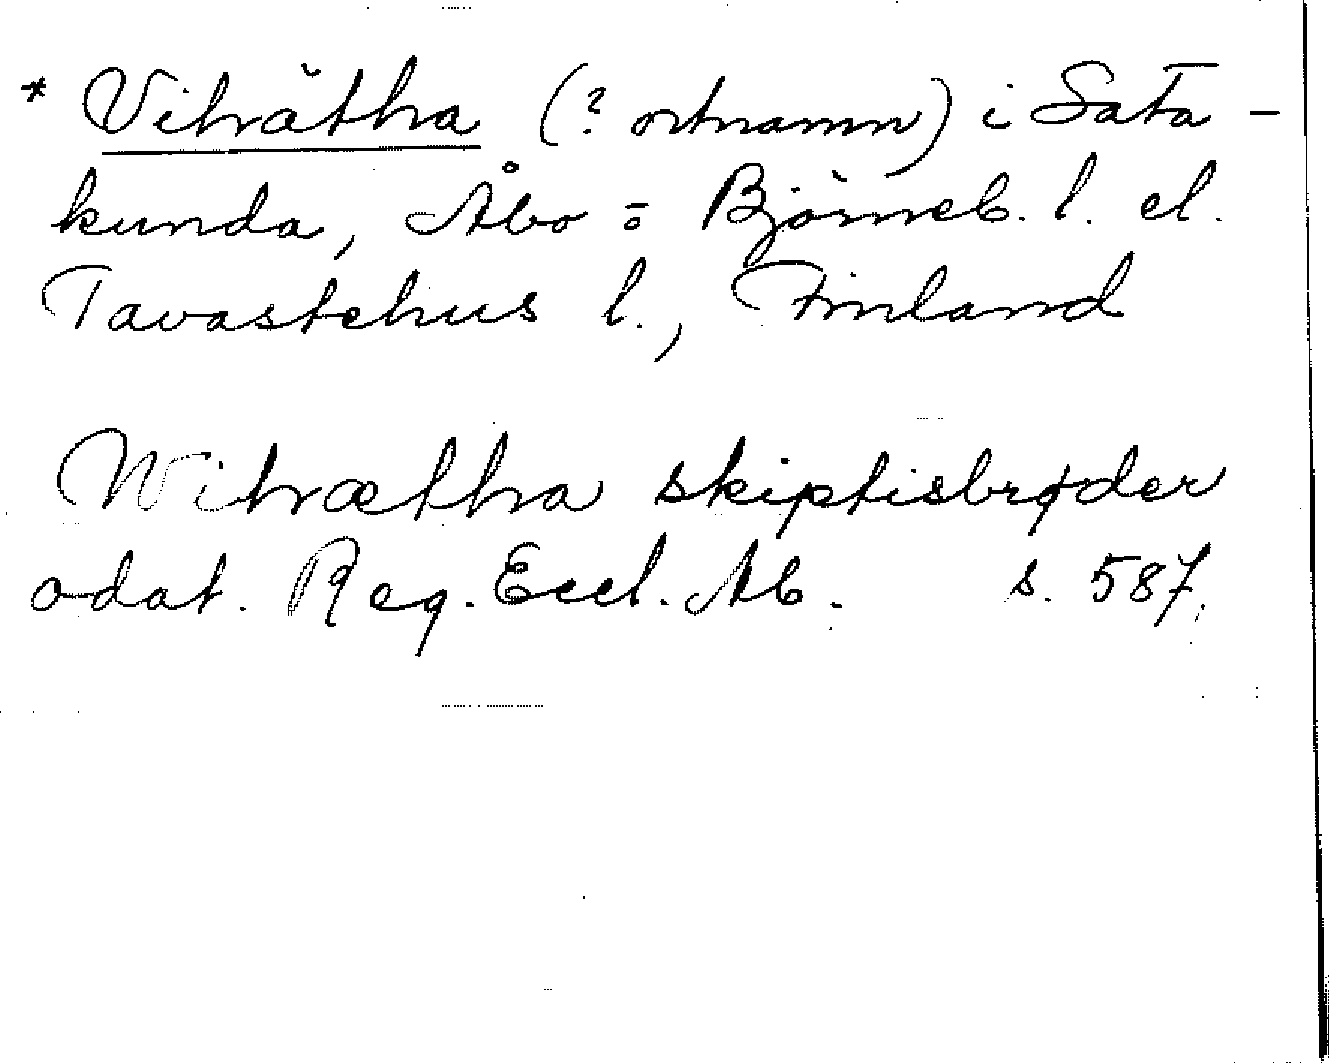 * Vihrätha (? ortnamn) i Sata-
kunda, Åbo = Björneb. l. el.
Tavastehus l., Finland
Wihrætha skiptisbrøder
odat. Reg. Eccl. Ab. s. 587.